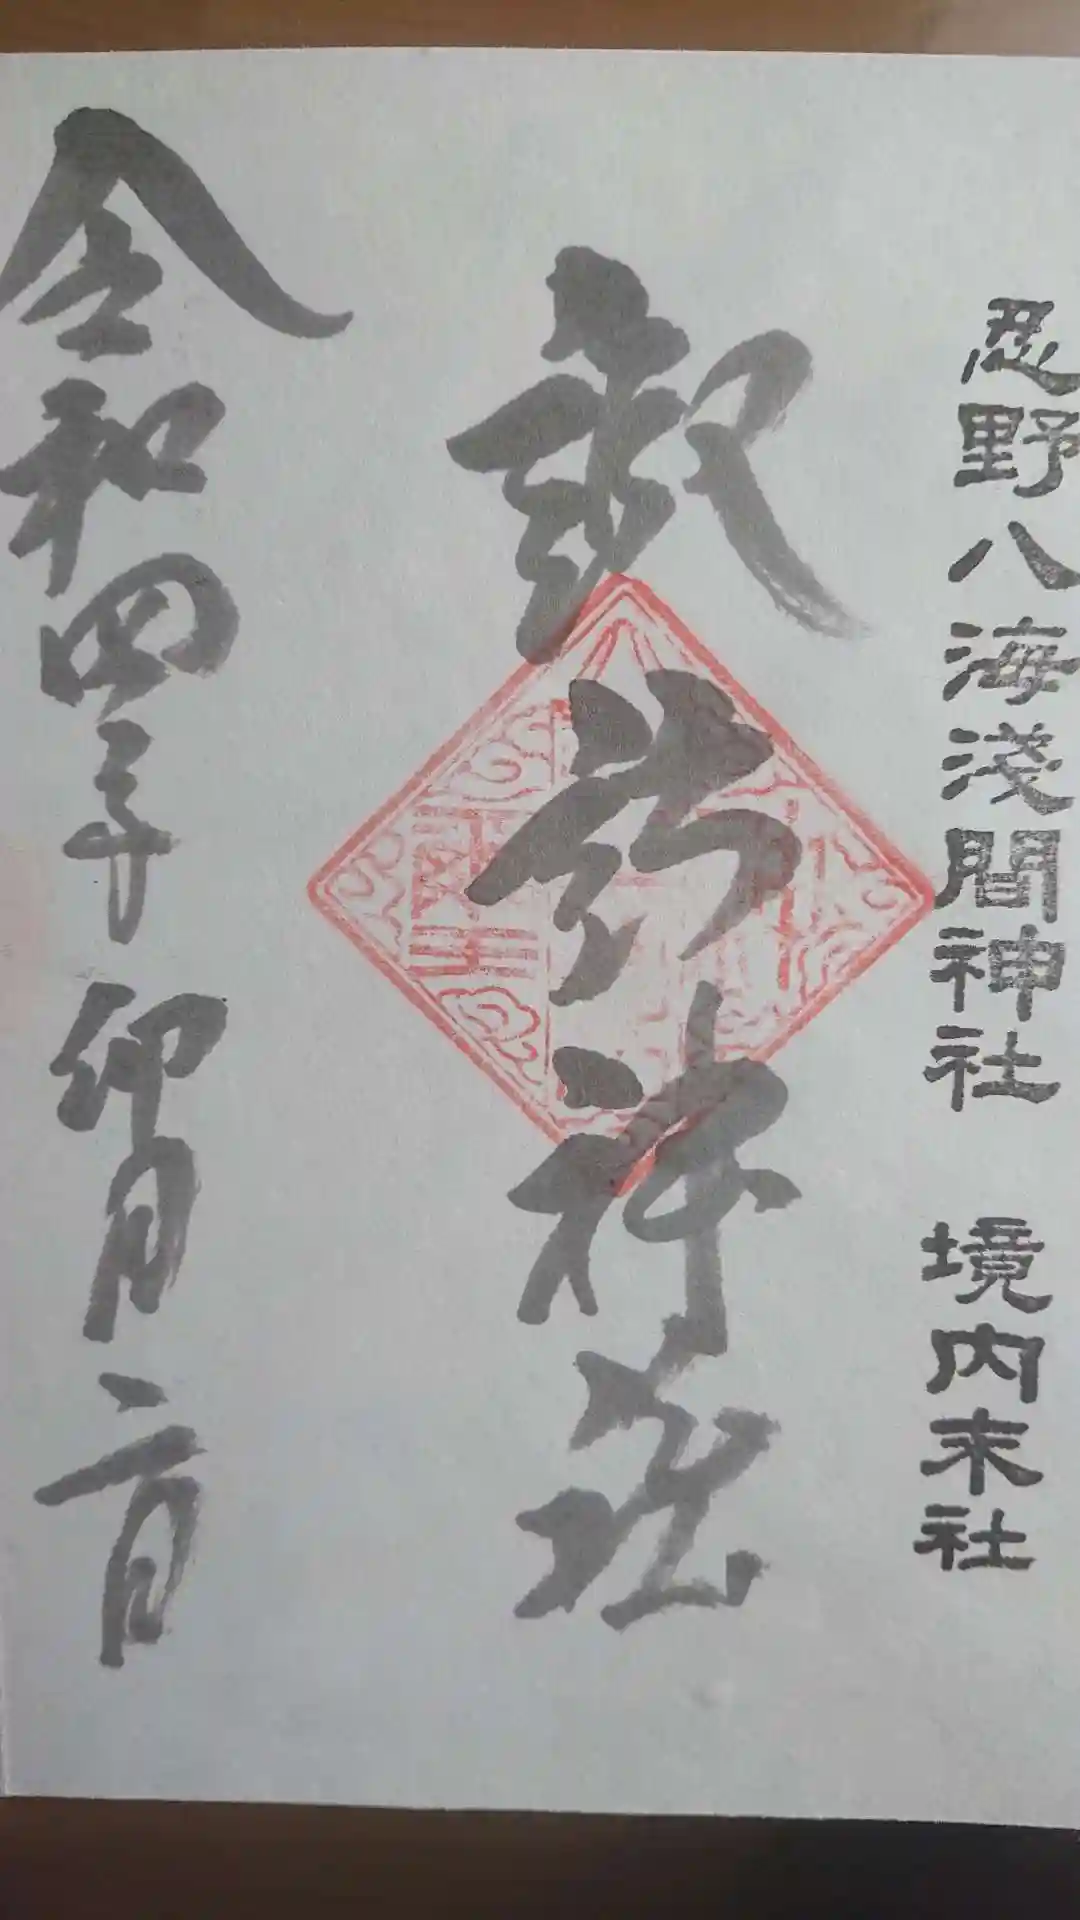 忍野八海淺間神社 境内末社
神社
令和四年 卯月 二日